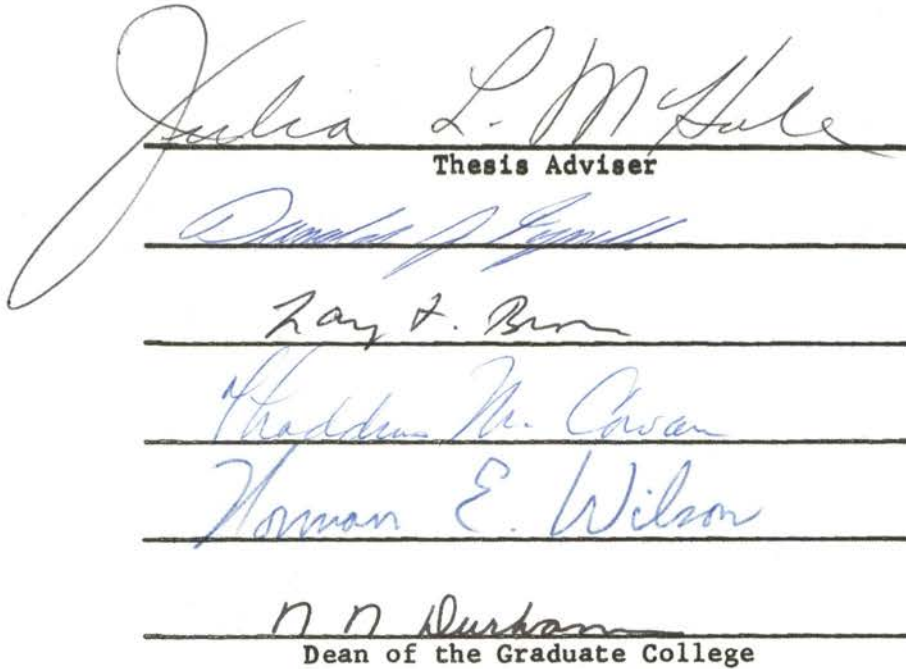 Julia L. McHale
Thesis Adviser
Donald J.
Larry T. Brown
Thaddeus M. Cowan
Norman E. Wilson
N N Durham
Dean of the Graduate College